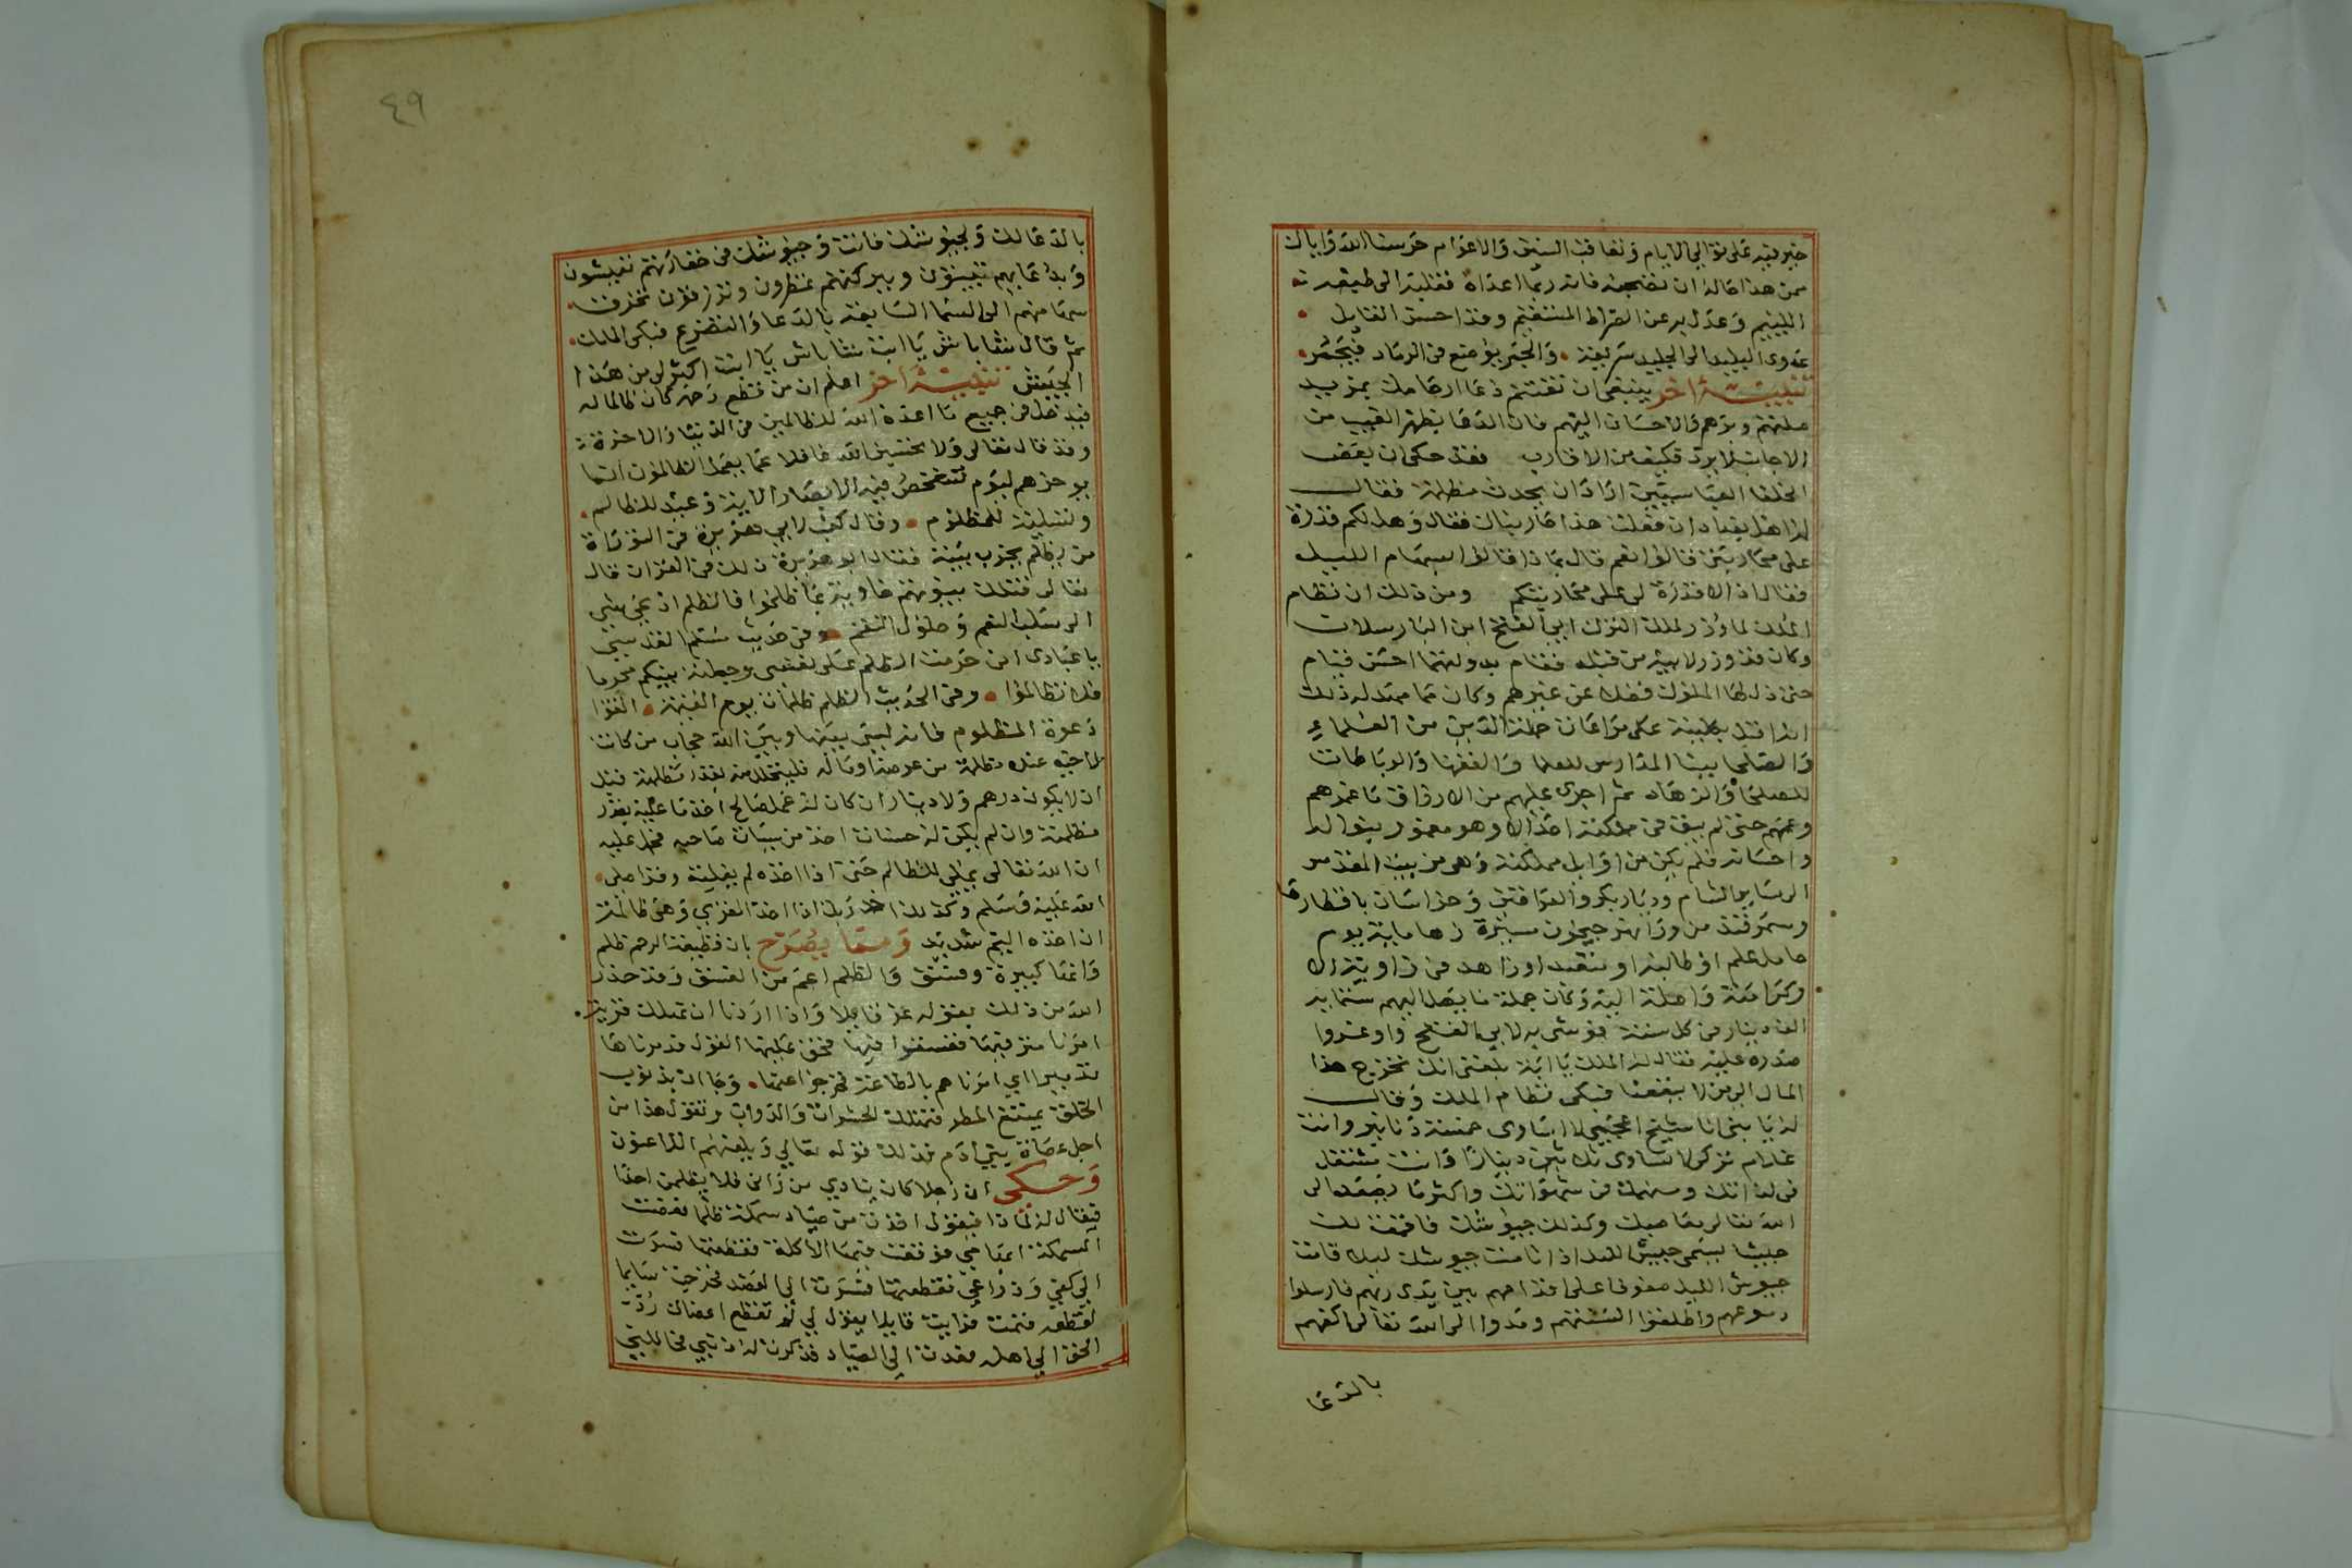 خير فيه على توالي الايام وتعاقب السنين والاعوام حرسنا الله واياك
ممن هذا حاله ان تصحبه فانه ربما اعداك فقلبك الى طبعه
اللئيم وعدل بك عن الصراط المستقيم وقد احسن القايل
عدوى البليد الى الجليد سريعة والجمر يوضع في الرماد فيخمد
تنبيه اخر ينبغي ان تغتنم دعا ارحامك بمزيد
صلتهم وبرهم والاحسان اليهم فان الدعا بظهر الغيب من
الاجانب لا يرد فكيف من الاقارب فقد حكى ان بعض
الخلفا العباسيين اراد ان يحدث مظلمة فقال
له اهل بغداد ان فعلت هذا حاربناك فقال وهل لكم قدرة
على محاربتي قالوا نعم قال بماذا قالوا بسهام الليل
فقال اذا لا قدرة لي على محاربتكم ومن ذلك ان نظام
الملك لما وزر لملك الترك ابي الفتح ابن البارسلان
وكان قد وزر لابيه من قبله فقام بدولتهما احسن قيام
حتى ذل لها الملوك فضلا عن غيرهم وكان مما مهد له ذلك
انه اقبل بكليته على مراعات حملة الدين من العلماء
والصلحا ببنا المدارس للعلما والفقها والرباطات
للصلحا والزهاد ثم اجرى عليهم من الارزاق ما عمهم
وعمهم حتى لم يبق في مملكته احد الا وهو مغمور بنواله
واحسانه فلم يكن من اوايل مملكته وهي من بيت المقدس
الى ساير الشام وديار بكر والعراقين وخراسان باقطارها
وسمرقند من ورا نهر جيحون مسيرة زها ماية يوم
حامل علم او طالبه او متعبد او زاهد في زاويته الا
وكرامته واصلة اليه وكان جملة ما يصل اليهم ستماية
الف دينار في كل سنة فوشى به لابي الفتح واوغروا
صدره عليه فقال له الملك يا ابة بلغني انك تخرج هذا
المال الى من لا ينفعنا فبكى نظام الملك وقال
له يا بني انا شيخ اعجمي لا اساوى خمسة دنانير وانت
غلام تركي لا تساوى ثلاثين دينارا وانت مشتغل
في لذاتك ومنهمك في شهواتك واكثر ما يصعد الى
الله تعالى معاصيك وكذلك جيوشك فاقمت لك
جيشا يسمى جيش الليل اذا نامت جيوشك ليلا قامت
جيوش الليل صفوفا على اقدامهم بين يدى ربهم فارسلوا
دموعهم واطلقوا السنتهم ومدوا الى الله تعالى اكفهم
بالدعا
٤٩
بالدعا لك ولجيوشك فانت وجيوشك في خفارتهم تعيشون
وبدعايهم تبيتون وببركتهم تمطرون وترزقون تخرق
سهامهم الى السما السابعة بالدعا والتضرع فبكى الملك
ثم قال شاباش يا ابت شاباش يا ابت اكثر لي من هذا
الجيش تنبيه اخر اعلم ان من قطع رحمه كان ظالما له
فيدخل في جميع ما اعده الله للظالمين في الدنيا والاخرة
وقد قال تعالى ولا تحسبن الله غافلا عما يعمل الظالمون انما
يوخرهم ليوم تشخص فيه الابصار الاية وعيد للظالم
وتسلية للمظلوم وقال كعب لابي هريرة في التوراة
من يظلم يخرب بيته فقال ابو هريرة ذلك في القران قال
تعالى فتلك بيوتهم خاوية بما ظلموا فالظلم ادعى شي
الى سلب النعم وحلول النقم وفي حديث مسلم القدسي
يا عبادى اني حرمت الظلم على نفسي وجعلته بينكم محرما
فلا تظالموا وفي الحديث الظلم ظلمات يوم القيمة اتقوا
دعوة المظلوم فانه ليس بينها وبين الله حجاب من كانت
لاخيه عنده مظلمة من عرضه او ماله فليتحلل منه بقدر مظلمته قبل
ان لا يكون درهم ولا دينار ان كان له عمل صالح اخذ ما عليه بقدر
مظلمته وان لم يكن له حسنات اخذ من سيات صاحبه فحمل عليه
ان الله تعالى يملي للظالم حتى اذا اخذه لم يفلته وقرا صلى
الله عليه وسلم وكذلك اخذ ربك اذا اخذ القرى وهي ظالمة
ان اخذه اليم شديد ومما يصرح بان قطيعة الرحم ظلم
وانها كبيرة وفسق والظلم اعم من الفسق وقد حذر
الله من ذلك بقوله عز قايلا واذا اردنا ان نهلك قرية
امرنا مترفيها ففسقوا فيها فحق عليها القول فدمرناها
تدميرا اي امرناهم بالطاعة فخرجوا عنها وجا ان بذنوب
الخلق يمتنع المطر فتهلك الحشرات والدواب وتقول هذا من
اجل عصاة بني ادم فذلك قوله تعالي ويلعنهم اللاعنون
وحكى ان رجلا كان ينادي من راني فلا يظلمن احدا
فيقال له لماذا فيقول اخذت من صياد سمكة ظلما فعضت
السمكة ابهامي فوقعت فيها الاكلة فقطعتها فسرت
الى كفي وذراعي فقطعتها فسرت الى العضد فخرجت سايحا
لقطعه فنمت فرايت قايلا يقول لي لم تقطع اعضاك رد
الحق الى اهله فعدت الى الصياد فذكرت له ذنبي فحاللني